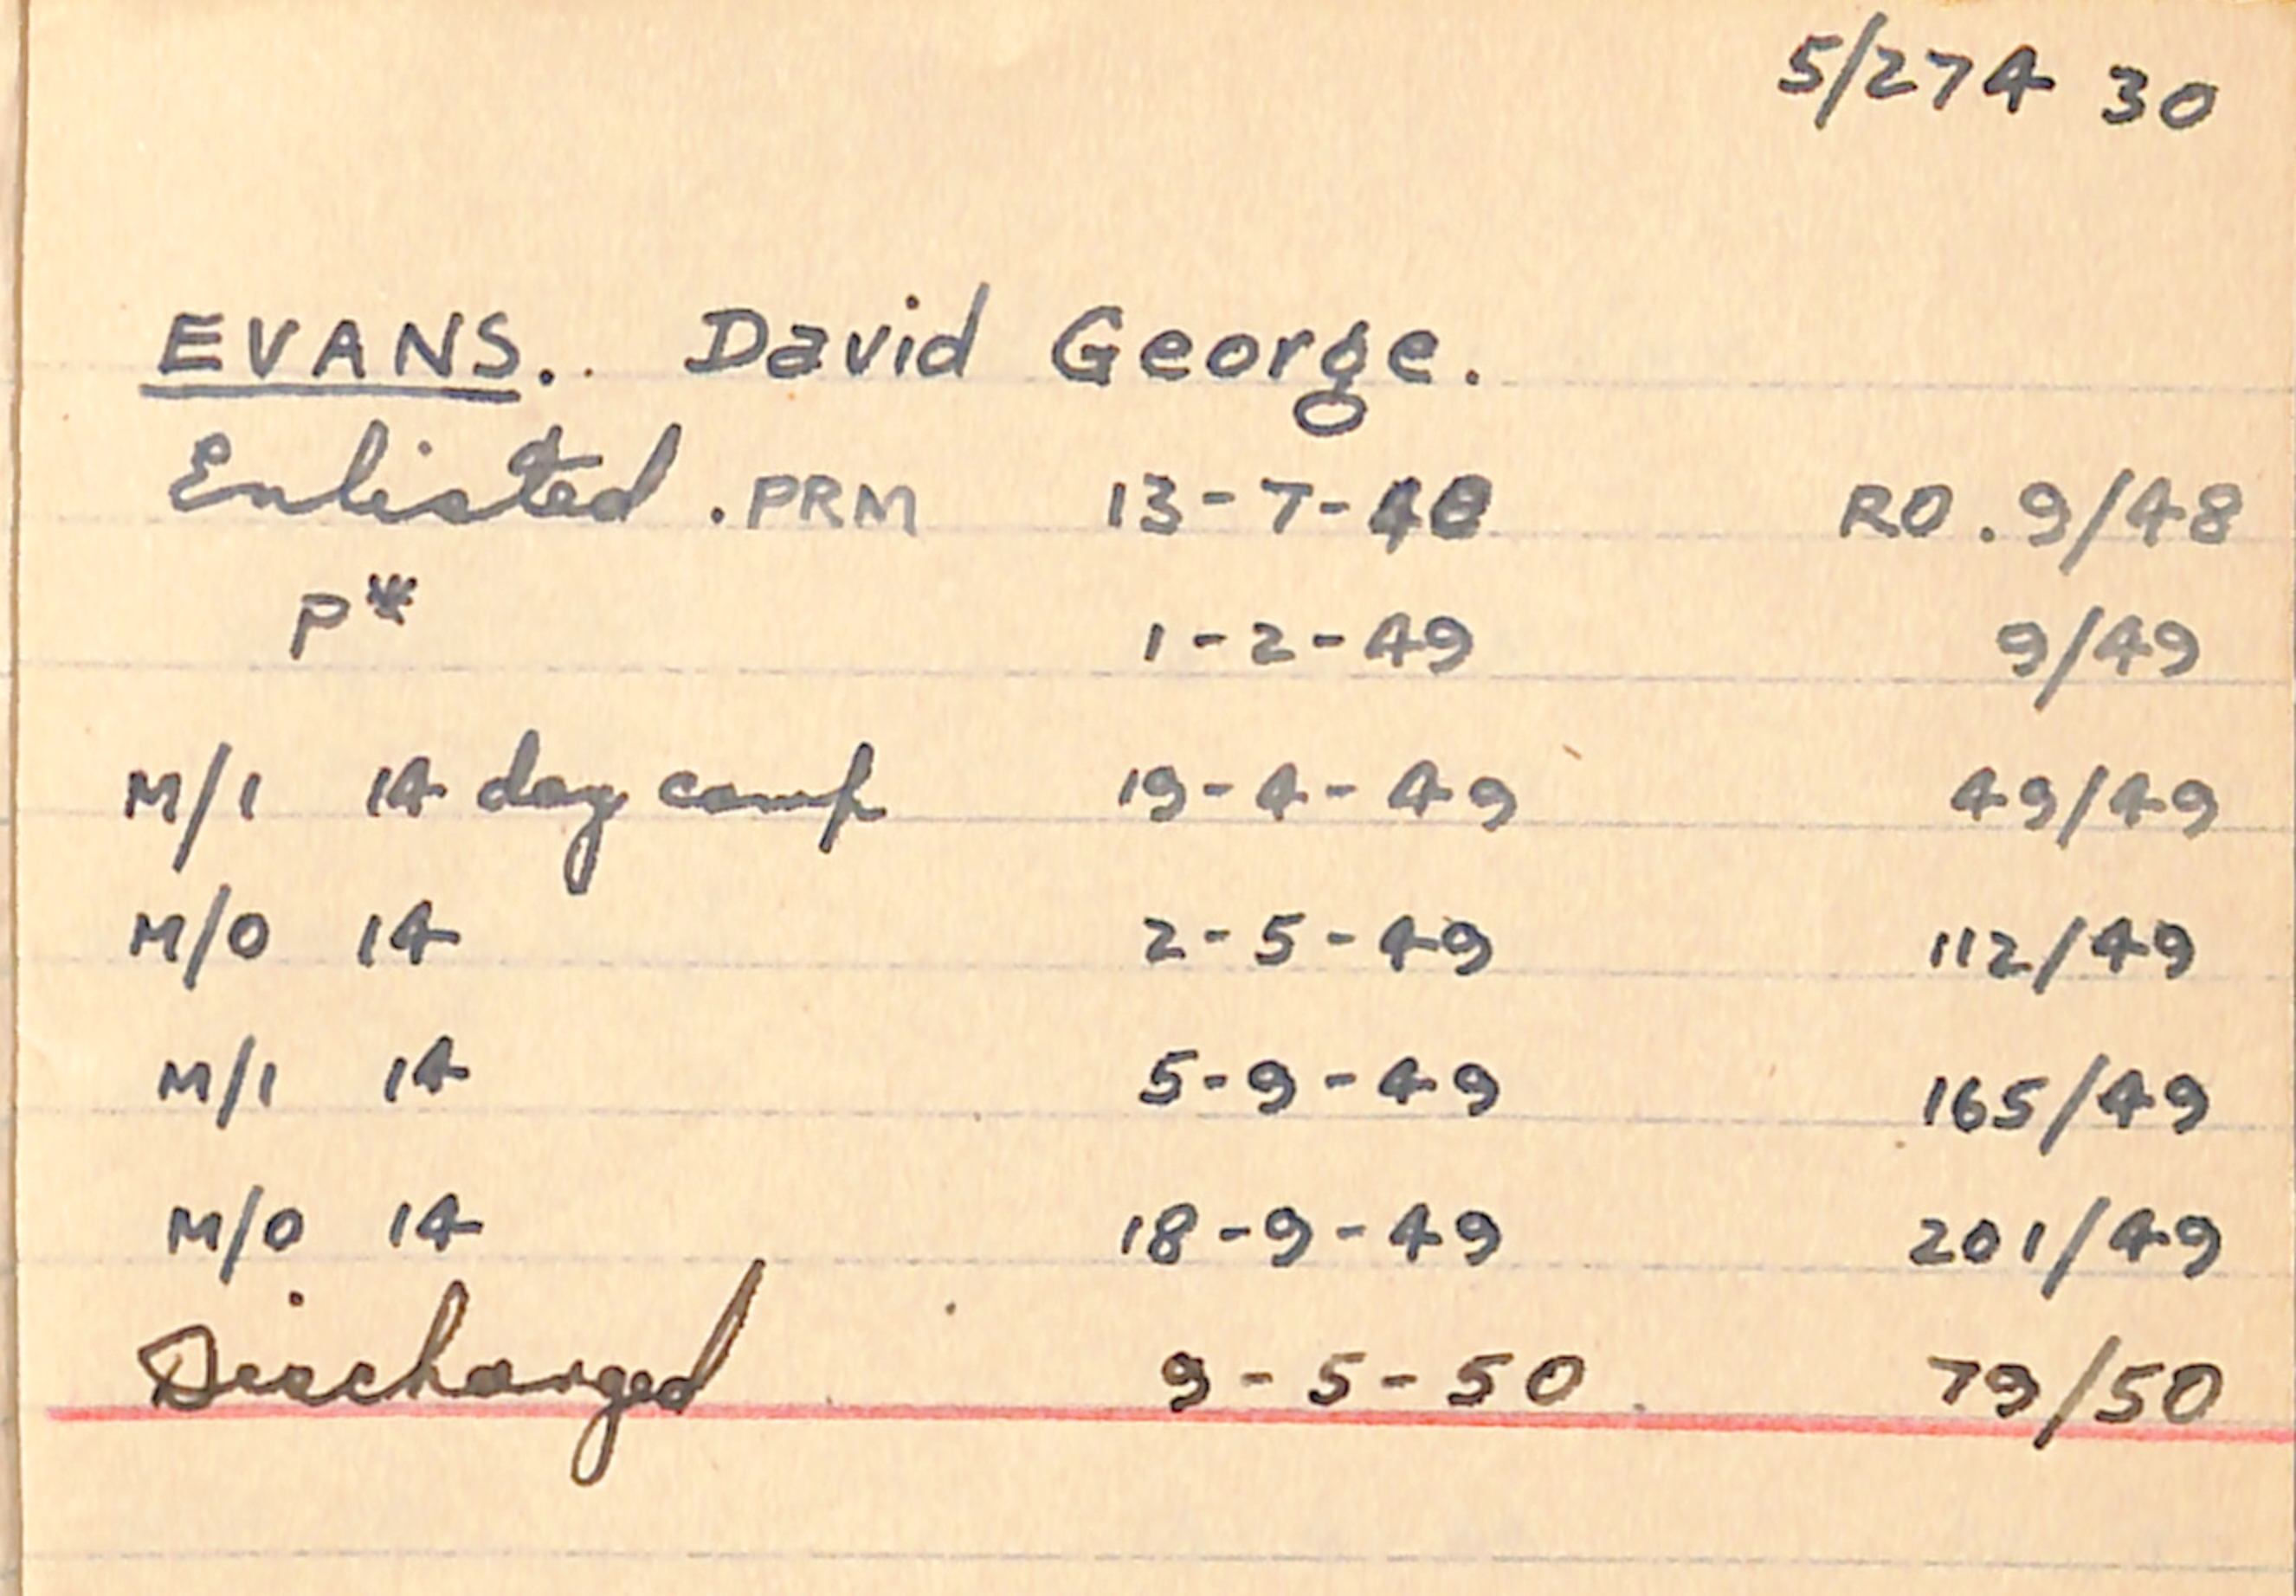 5/274 30
EVANS. . David George.
Enlisted . PRM 13-7-48 RO. 9/48
P 1-2-49 9/49
M/1 14 day camp 19-4-49 49/49
M/O 14 2-5-49 112/49
M/1 14 5-9-49 165/49
M/O 14 18-9-49 201/49
Discharged 9-5-50 79/50